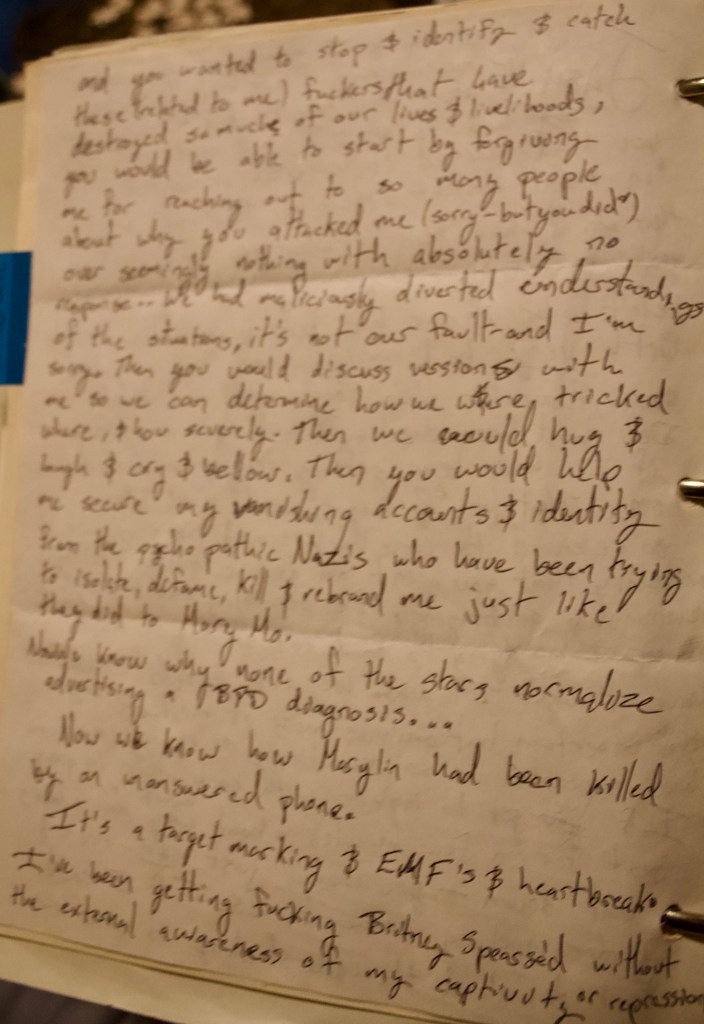 and you wanted to stop & identify & catch
these (related to me) fuckers that have
destroyed so much of our lives & livelihoods,
you would be able to start by forgiving
me for reaching out to so many people
about why you attacked me (sorry-but you did)
over seemingly nothing with absolutely no
response.. We had maliciously diverted understandings
of the situations, it's not our fault-and I'm
sorry. Then you would discuss versions with
me so we can determine how we were tricked
where, & how severely. Then we would hug &
laugh & cry & bellow. Then you would help
me secure my vanishing accounts & identity
from the psychopathic Nazis who have been trying
to isolate, defame, kill & rebrand me just like
they did to Mary Mo.
Now we know why none of the stars normalize
advertising a BPD diagnosis...
Now we know how Marylin had been killed
by an unanswered phone.
It's a target marking & EMF's & heartbreak.
I've been getting fucking Britney Spearsed without
the external awareness of my captivity, or repression